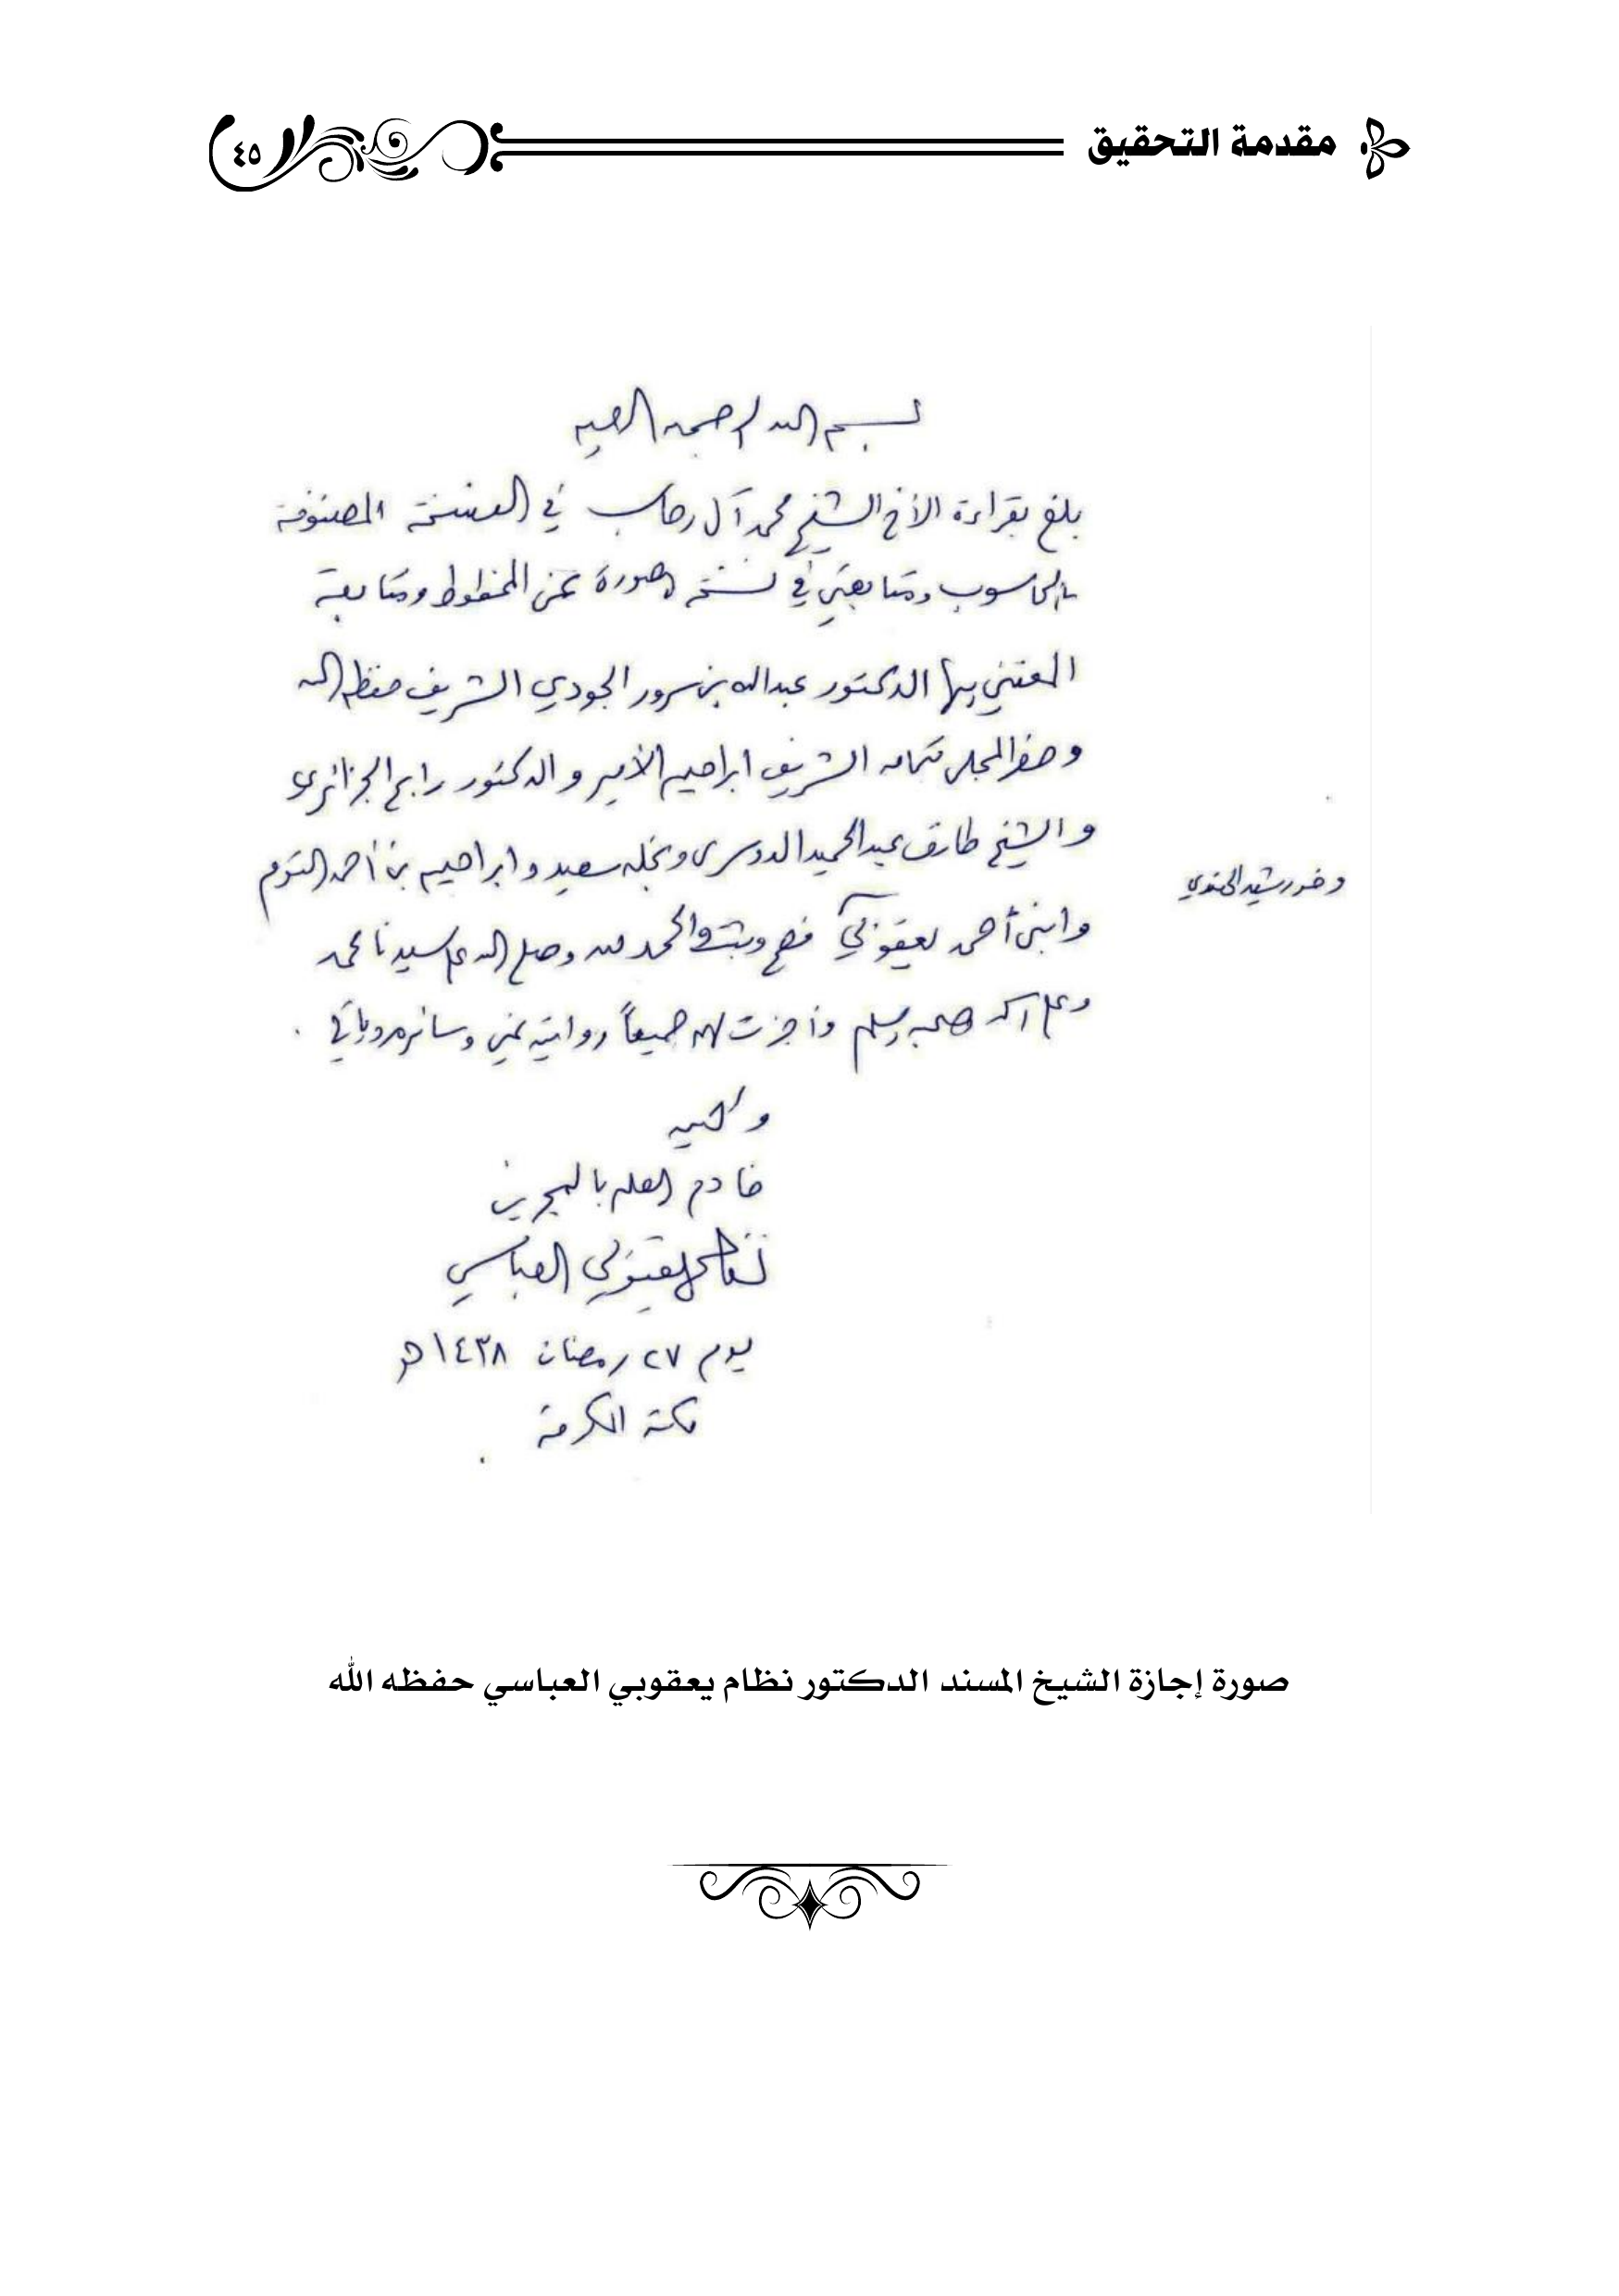 مقدمة التحقيق
٤٥
بسم الله الرحمن الرحيم
بلغ بقراءة الأخ الشيخ محمد آل رحاب في النسخة المصفوفة
بالحاسوب ومتابعتي في نسخة مصورة عن المخطوط ومتابعة
المعتني بها الدكتور عبدالله بن سرور الجودي الشريف حفظه الله
وحضر المجلس بتمامه الشريف ابراهيم الأمير والدكتور رابح الجزائري
والشيخ طارق عبدالحميد الدوسري ونجله سعيد وابراهيم بن أحمد التوم
وخورشيد الهندي
وابني أحمد يعقوبي فصح وثبت والحمد لله وصلى الله على سيدنا محمد
وعلى آله وصحبه وسلم وأجزت لهم جميعاً روايته عني وسائر مروياتي .
وكتبه
خادم العلم بالبحرين
نظام يعقوبي العباسي
يوم ٢٧ رمضان ١٤٣٨ هـ
مكة المكرمة
صورة إجازة الشيخ المسند الدكتور نظام يعقوبي العباسي حفظه الله